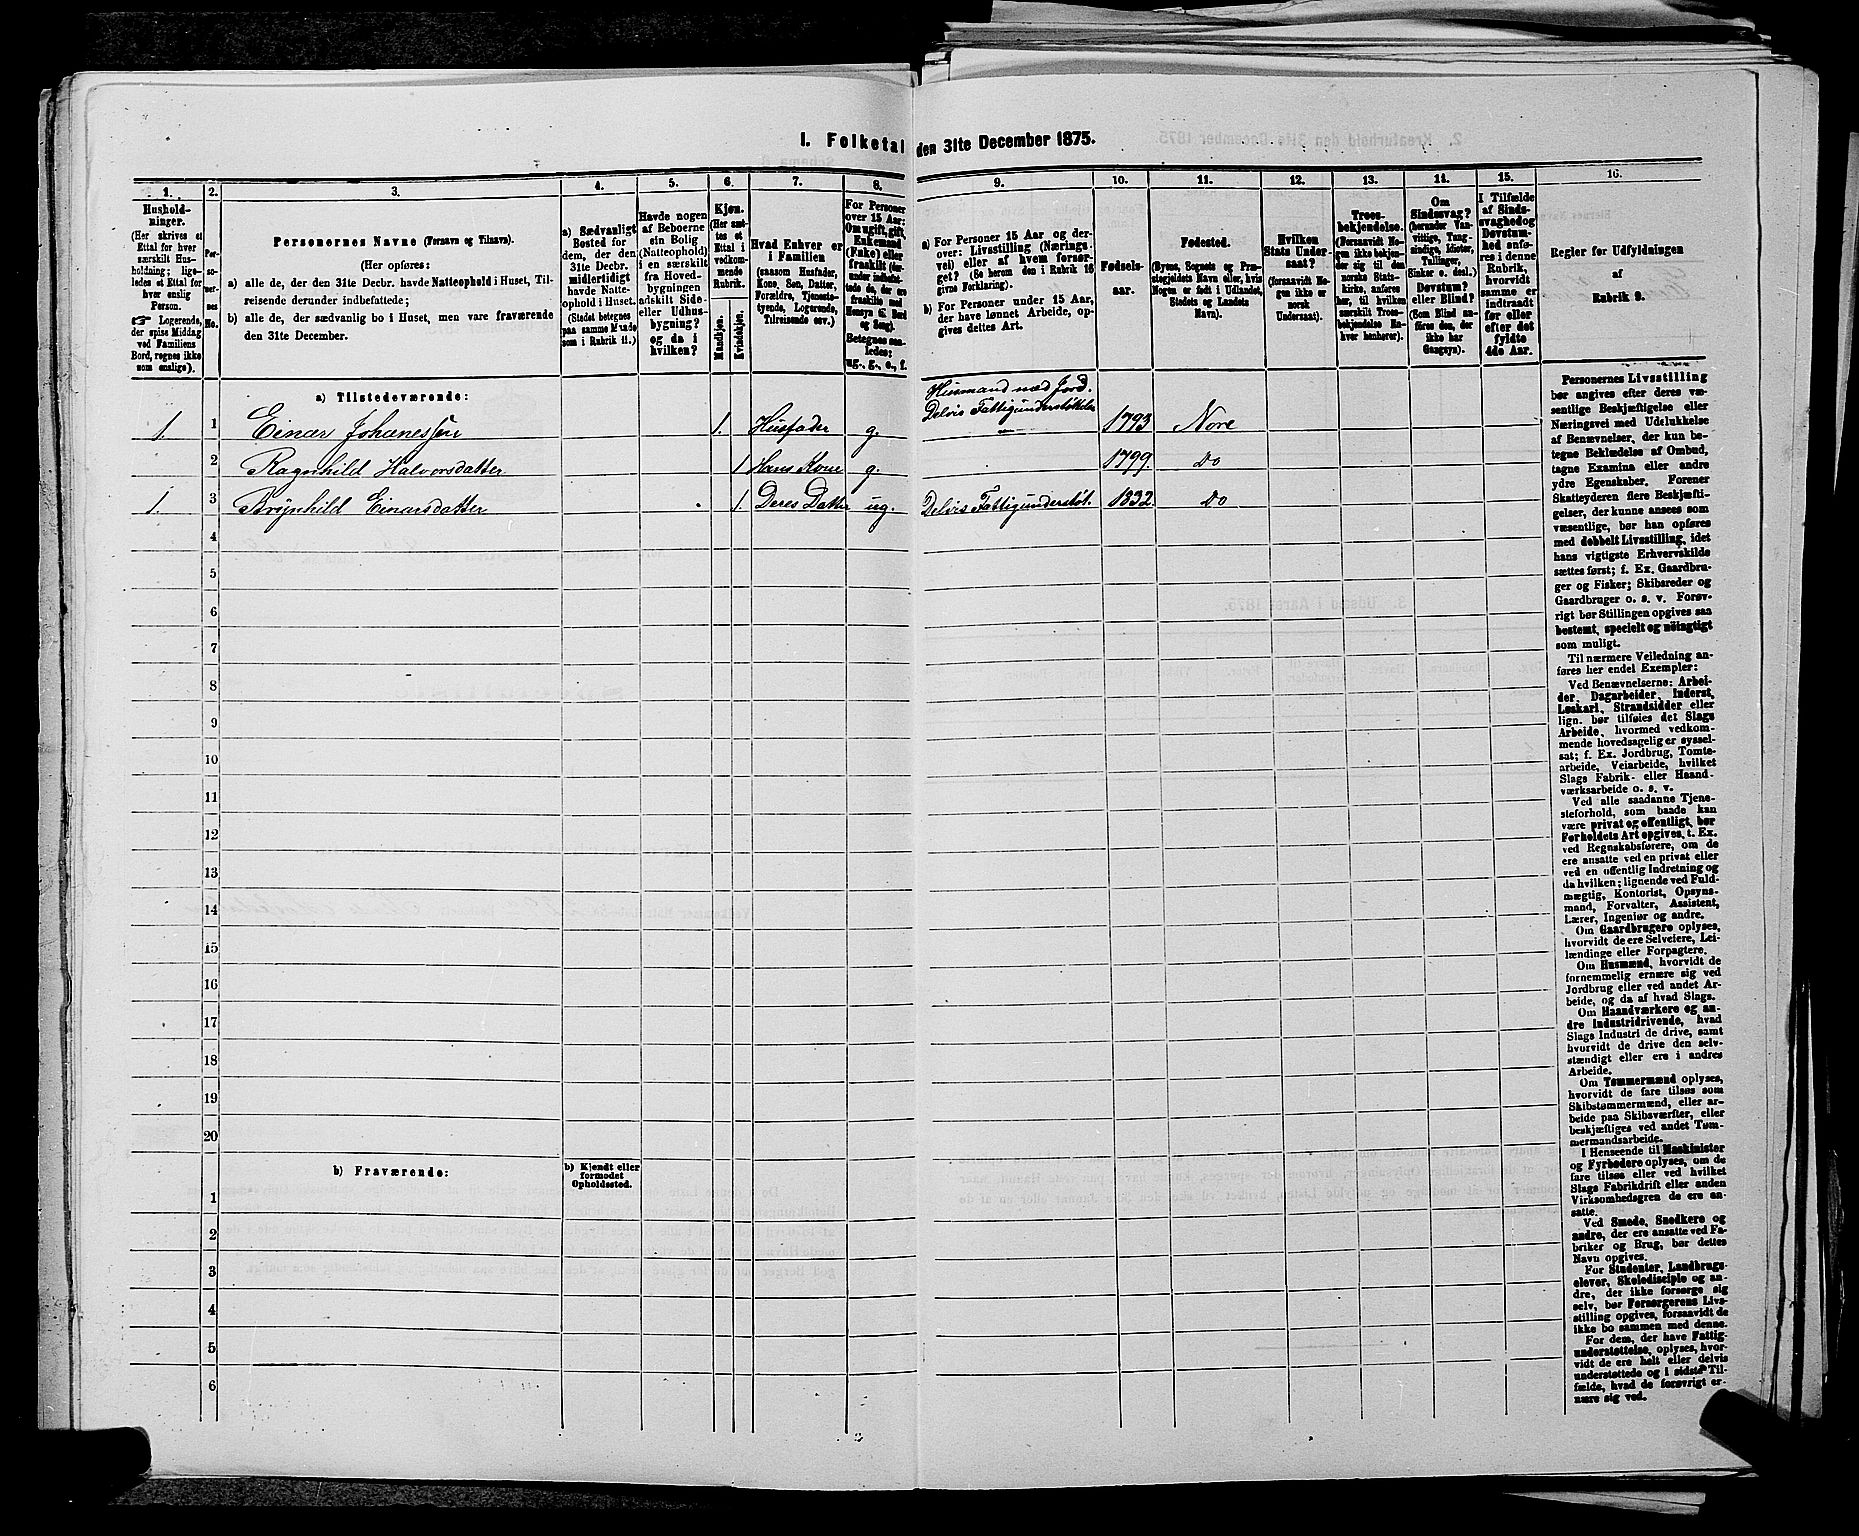 I. Folketal den 31te December 1875.
1. 2. 3. 4. 5. 6. 7. 8. 9. 10. 11. 12. 13. 14. 15. 16.
Hushold-
ninger.
(Her skrives et
Ettal for hver
særskilt Hus-
holdning; lige-
ledes et Ettal for
hver enslig
Person.
☞ Logerende,
der spise Middag
ved Familiens
Bord, regnes ikke
som enslige).
Per-
so-
ner-
nes
No.
Personernes Navne (Fornavn og Tilnavn).
(Her opføres:
a) alle de, der den 31te Decbr. havde Natteophold i Huset, Til-
reisende derunder indbefattede;
b) alle de, der sædvanlig bo i Huset, men vare fraværende
den 31te December.
a) Sædvanligt
Bosted for
dem, der den
31te Decbr.
midlertidigt
havde Natte-
ophold i Huset.
(Stedet betegnes
paa samme Maade
som i Rubrik 11.)
Havde nogen
af Beboerne
ein Bolig
(Natteophold)
i en særskilt
fra Hoved-
bygningen
adskilt Side-
eller Udhus-
bygning?
og da i
hvilken?
Kjøn.
(Her sæt-
tes et
Ettal i
vedkom-
mende
Rubrik.
Mandkjøn.
Kvindekjøn.
Hvad Enhver er
i Familien
(saasom Husfader,
Kone, Søn, Datter,
Forældre, Tjeneste-
tyende, Logerende,
Tilreisende osv.)
For Personer
over 15 Aar:
Om ugift, gift,
Enkemand
(Enke) eller
fraskilt (der-
under indbefat-
tede de, der ere
fraskilte med
Hensyn til Bord
og Seng).
Betegnes saa-
ledes:
ug., g., e., f.
a) For Personer 15 Aar og der-
over: Livsstilling (Nærings-
vei) eller af hvem forsør-
get? (Se herom den i Rubrik 16
givne Forklaring).
b) For Personer under 15 Aar,
der have lønnet Arbeide, op-
gives dettes Art.
Fødsels-
aar.
Fødested.
(Byens, Sognets og Præ-
stegjeldets Navn eller, hvis
Nogen er født i Udlandet,
Stedets og Landets
Navn).
Hvilken
Stats Under-
saat?
(forsaavidt No-
gen ikke er
norsk
Undersaat).
Troes-
bekjendelse.
(Forsaavidt No-
gen ikke bekjen-
der sig til den
norske Stats-
kirke, anføres
her, til hvilken
særskilt Troes-
bekjendelse En-
hver henhører).
Om
Sindssvag?
(herunder Van-
vittige, Tung-
sindige, Idioter,
Tullinger,
Sinker o. desl.)
Døvstum?
eller Blind?
(Som Blind an-
føres den, der
ikke har
Gangsyn).
I Tilfælde
af Sinds-
svaghed og
Døvstum-
hed anfø-
res i denne
Rubrik,
hvorvidt
samme er
indtraadt
før eller
efter det
fyldte
4de Aar.
Regler for Udfyldningen
af
Rubrik 9.
a) Tilstedeværende:
Husmand med Jord.
1. 1 Einar Johanessen 1. Husfader g. Delvis Fattigunderstøttelse 1793 Nore
2 Ragnhild Halvorsdatter 1 Hans Kone g. 1799. Do
1. 3 Brynhild Einarsdatter 1. Deres Datter ug. Delvis Fattigunderstøt. 1832. Do
4
5
6
7
8
9
10
11
12
13
14
15
16
17
18
19
20
b) Fraværende:
b) Kjendt eller
formodet
Opholdssted.
1
2
3
4
5
6
Personernes Livsstilling
bør angives efter deres væ-
sentlige Beskjæftigelse eller
Næringsvei med Udelukkelse
af Benævnelser, der kun be-
tegne Beklædelse af Ombud,
tagne Examina eller andre
ydre Egenskaber. Forener
Skatteyderen flere Beskjæfti-
gelser, der kunne ansees som
væsentlige, bør han opføres
med dobbelt Livsstilling, idet
hans vigtigste Erhvervskilde
sættes først; f. Ex. Gaardbru-
ger og Fisker; Skibsreder og
Gaardbruger o. s. v. Forøv-
rigt bør Stillingen opgives saa
bestemt, specielt og nöiagtigt
som muligt.
Til nærmere Veiledning an-
føres her endel Exempler:
Ved Benævnelserne: Arbei-
der, Dagarbeider, Inderst,
Løskarl, Strandsidder eller
lign. bør tilføies det Slags
Arbeide, hvormed vedkom-
mende hovedsagelig er syssel-
sat; f. Ex. Jordbrug, Tomte-
arbeide, Veiarbeide, hvilket
Slags Fabrik- eller Haand-
værksarbeide o. s. v.
Ved alle saadanne Tjene-
steforhold, som baade kan
være privat og offentligt, bør
Forholdets Art opgives, t. Ex.
ved Regnskabsførere, om de
ere ansatte ved en privat eller
ved en offentlig Indretning og
da hvilken; lignende ved Fuld-
mægtig, Kontorist, Opsyns-
mand, Forvalter, Assistent,
Lærer, Ingeniør og andre.
Om Gaardbrugere oplyses,
hvorvidt de ere Selveiere, Lei-
lændinge eller Forpagtere.
Om Husmænd, hvorvidt de
fornemmelig ernære sig ved
Jordbrug eller ved andet Ar-
beide, og da af hvad Slags.
Om Haandværkere og an-
dre Industridrivende, hvad
Slags Industri de drive, samt
hvorvidt de drive den selv-
stændigt eller ere i andres
Arbeide.
Om Tømmermænd oplyses,
hvorvidt de fare tilsøs som
Skibstømmermænd, eller ar-
beide paa Skibsværfter, eller
beskjæftiges ved andet Tøm-
mermandsarbeide.
I Henseende til Maskinister
og Fyrbødere oplyses, om de
fare tilsøs eller ved hvilket
Slags Fabrikdrift eller anden
Virksomhedsgren de ere an-
satte.
Ved Smede, Snedkere og
andre, der ere ansatte ved Fa-
briker og Brug, bør dettes
Navn opgives.
For Studenter, Landbrugs-
elever, Skoledisciple og an-
dre, der ikke forsørge sig
selv, bør Forsørgerens Livs-
stilling opgives, forsaavidt de
ikke bo sammen med denne.
For dem, der have Fattig-
understøttelse, oplyses, hvor-
vidt de ere helt eller delvis
understøttede og i sidste Til-
fælde, hvad de forøvrigt er-
nære sig ved.